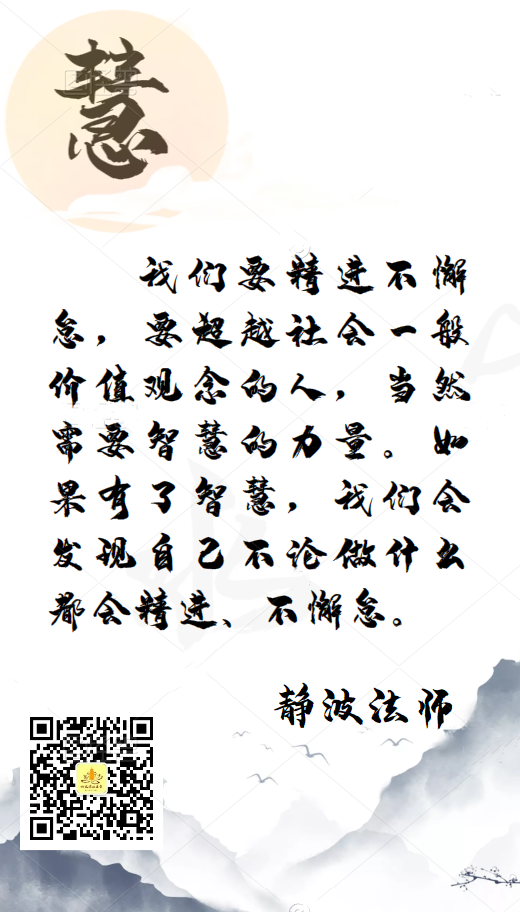 慧
我们要精进不懈
怠，要超越社会一般
价值观念的人，当然
需要智慧的力量。如
果有了智慧，我们会
发现自己不论做什么
都会精进、不懈怠。
静波法师